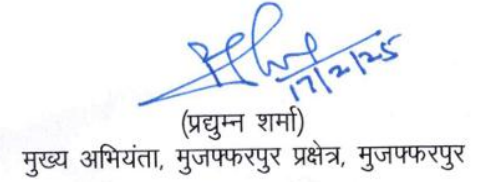 17/2/25
(प्रद्युम्न शर्मा)
मुख्य अभियंता, मुजफ्फरपुर प्रक्षेत्र, मुजफ्फरपुर